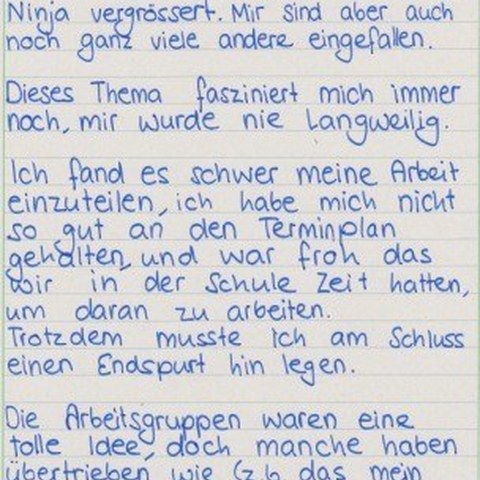 Ninja vergrössert. Mir sind aber auch
noch ganz viele andere eingefallen.
Dieses Thema fasziniert mich immer
noch, mir wurde nie Langweilig.
Ich fand es schwer meine Arbeit
einzuteilen, ich habe mich nicht
so gut an den Terminplan
gehalten, und war froh das
wir in der Schule Zeit hatten,
um daran zu arbeiten.
Trotzdem musste ich am Schluss
einen Endspurt hin legen.
Die Arbeitsgruppen waren eine
tolle Idee, doch manche haben
übertrieben wie (z.b das mein